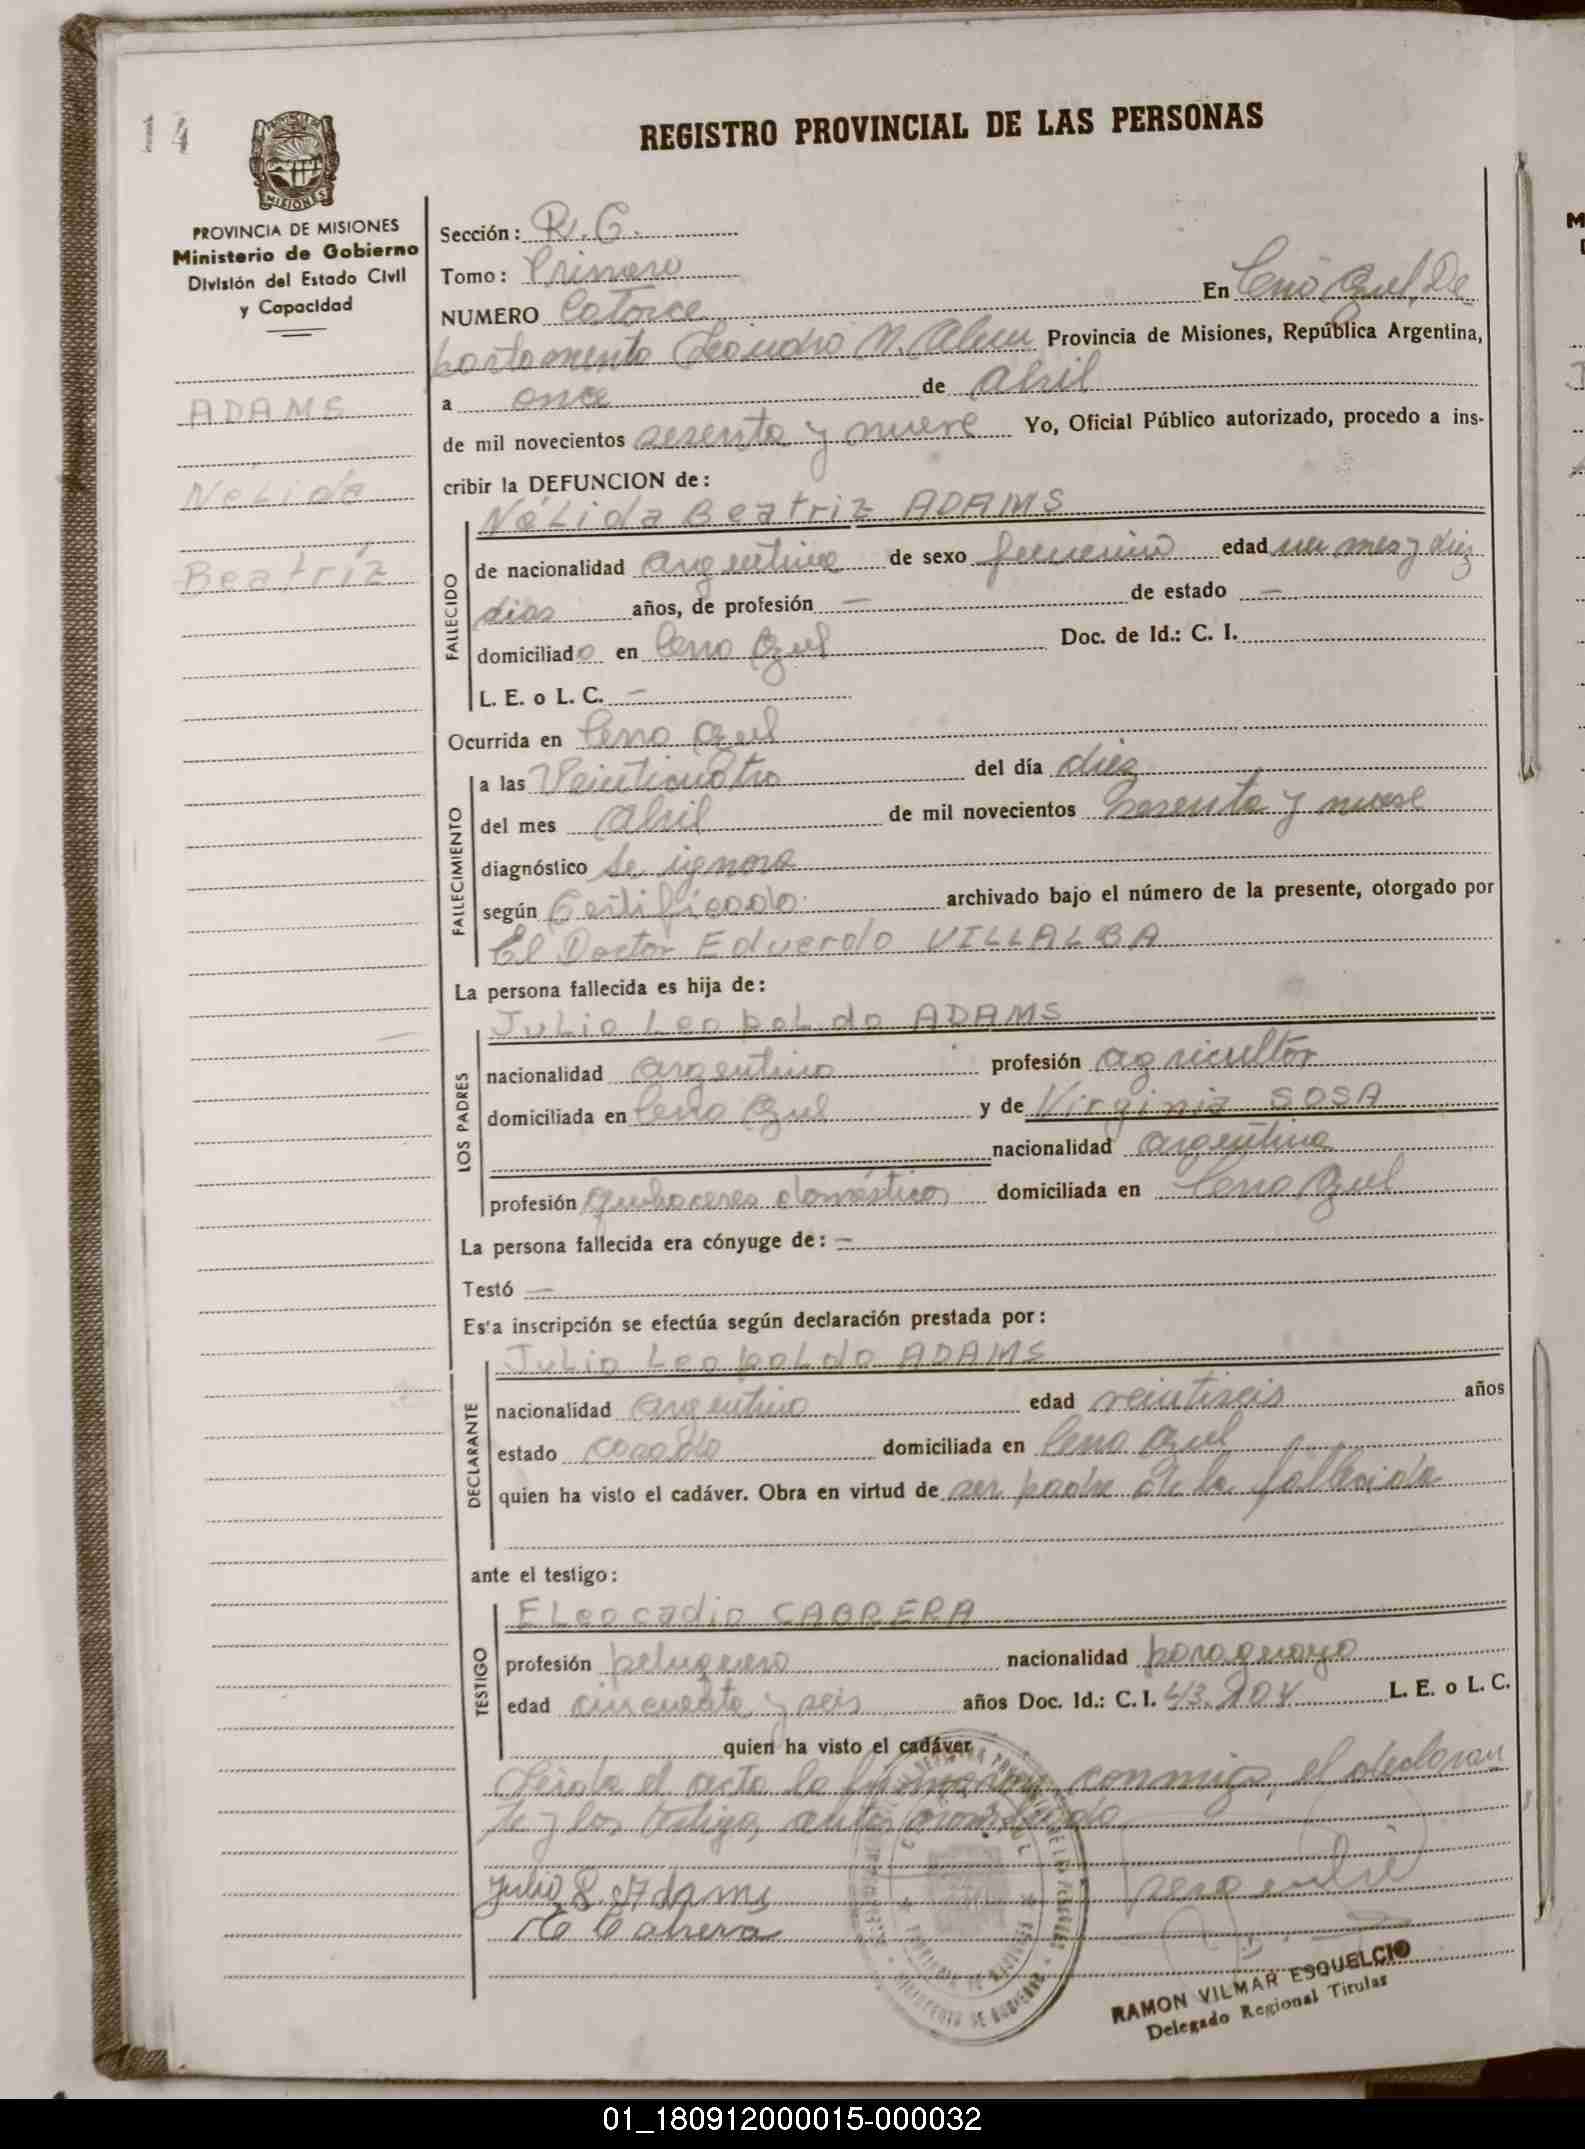 14
REGISTRO PROVINCIAL DE LAS PERSONAS
PROVINCIA DE MISIONES
Ministerio de Gobierno
División del Estado Civil
y Capacidad
ADAMS
Nélida
Beatriz
Sección: R. C.
Tomo: Primero
NUMERO Catorce En Cerro Azul, De
partamento Leandro N. Alem Provincia de Misiones, República Argentina,
a once de abril
de mil novecientos sesenta y nueve Yo, Oficial Público autorizado, procedo a ins-
cribir la DEFUNCION de:
Nélida Beatriz ADAMS
FALLECIDO
de nacionalidad argentina de sexo femenino edad un mes y diez
dias años, de profesión — de estado —
domiciliado en Cerro Azul Doc. de Id.: C. I.
L. E. o L. C. —
Ocurrida en Cerro Azul
FALLECIMIENTO
a las Veinticuatro del día diez
del mes Abril de mil novecientos sesenta y nueve
diagnóstico se ignora
según Certificado archivado bajo el número de la presente, otorgado por
El Doctor Eduardo VILLALBA
La persona fallecida es hija de:
LOS PADRES
Julio Leopoldo ADAMS
nacionalidad argentino profesión agricultor
domiciliada en Cerro Azul y de Virginia SOSA
nacionalidad argentina
profesión quehaceres domésticos domiciliada en Cerro Azul
La persona fallecida era cónyuge de: —
Testó —
Esta inscripción se efectúa según declaración prestada por:
DECLARANTE
Julio Leopoldo ADAMS
nacionalidad argentino edad veintiseis años
estado casado domiciliada en Cerro Azul
quien ha visto el cadáver. Obra en virtud de ser padre de la fallecida
ante el testigo:
TESTIGO
ELeocadio CABRERA
profesión peluquero nacionalidad paraguayo
edad cincuenta y seis años Doc. Id.: C. I. L. E. o L. C.
quien ha visto el cadáver
Leida el acta la firmaron conmigo, el declaran
te y los testigo,
Julio L. Adams
E Cabrera
RAMON VILMAR ESQUELCIO
Delegado Regional Titular
01_180912000015-000032